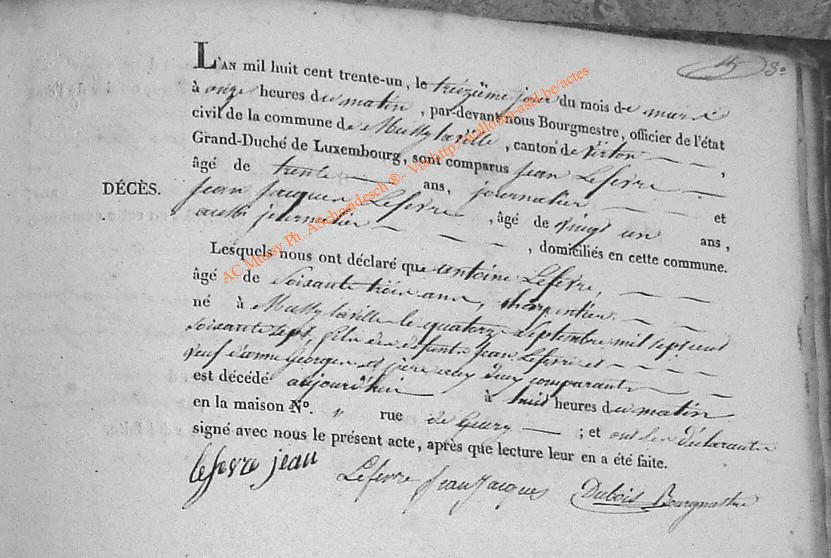 L'AN mil huit cent trente-un, le treizième jour du mois de mars
à onze heures du matin, par-devant nous Bourgmestre, officier de l'état
civil de la commune de Mussy laville, canton de Virton
Grand-Duché de Luxembourg, sont comparus Jean Lefevre
âgé de trente ans, journalier et
Jean Jacques Lefevre, âgé de vingt un ans,
aussi journalier, domiciliés en cette commune.
DÉCÈS.
Lesquels nous ont déclaré que antoine Lefevre,
âgé de soixante trois ans, charpentier
né à Mussy laville le quatorze septembre mil sept cent
soixante sept, fils des défunts Jean Lefevre et
veuf d'anne Georges et père aux deux comparants
est décédé aujourd'hui à huit heures du matin
en la maison N°. " rue de Guery ; et ont les déclarants
signé avec nous le présent acte, après que lecture leur en a été faite.
lefevre jean Lefevre Jean Jacques Dubois Bourgmestre
AC Mussy Ph. Aschneidesch ®- Visit http://wallonia-asbl.be/actes